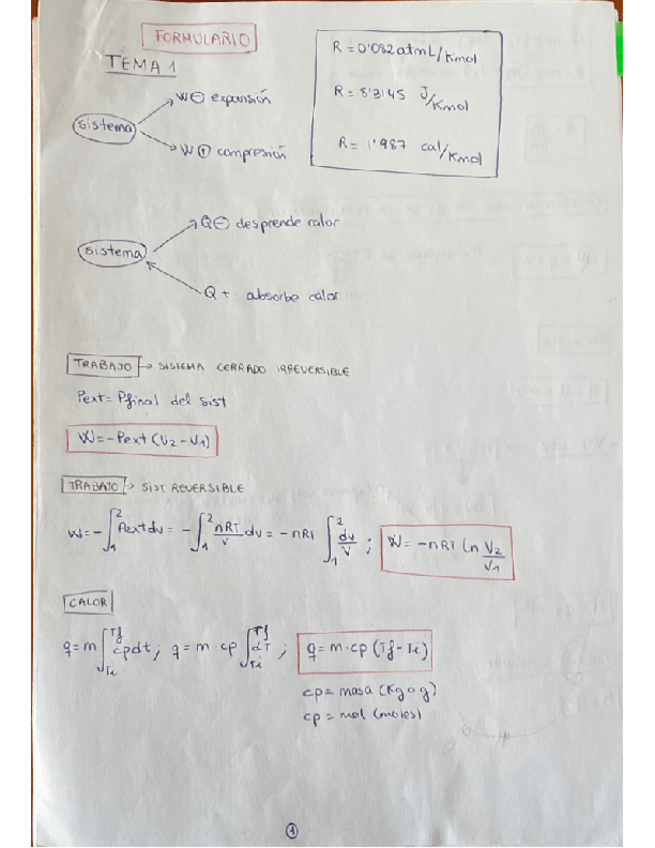 FORMULARIO
TEMA 1
R = 0'082 atmL/Kmol
R = 8'3145 J/Kmol
R = 1'987 cal/Kmol
sistema
W ⊖ expansión
W ⊕ compresión
sistema
Q ⊖ desprende calor
Q + absorbe calor
TRABAJO → SISTEMA CERRADO IRREVERSIBLE
Pext = Pfinal del sist
W = -Pext (V2 - V1)
TRABAJO → SIST REVERSIBLE
W = -∫₁² Pext dv = -∫₁² nRT/V dv = -nRT ∫₁² dv/V ; W = -nRT ln V2/V1
CALOR
q = m ∫Ti^Tf cp dt ; q = m · cp ∫Ti^Tf dT ; q = m · cp (Tf - Ti)
cp = masa (Kg o g)
cp = mol (moles)
1